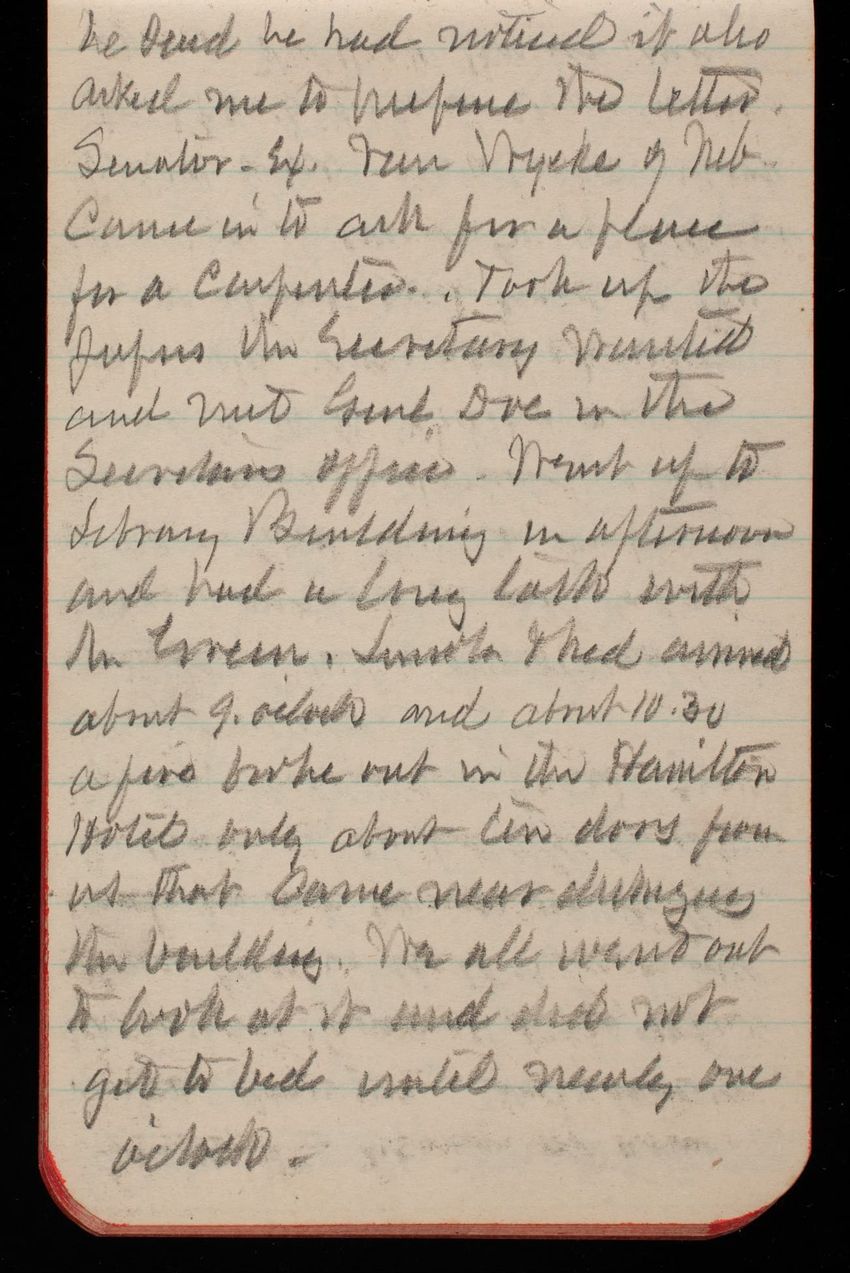 he said he had noticed it also
asked me to prepare the letter.
Senator - Ex. Van Wycke of Neb.
Came in to ask for a place
for a Carpenter. Took up the
papers the Secretary wanted
and met Genl Doe in the
Secretarys office. Went up to
Library Building in afternoon
and had a long talk with
Mr Green. had arrived
about 9. oclock and about 10.30
a fire broke out in the Hamilton
Hotel only about ten doors from
us that Came near destroying
the building. We all went out
to look at it and did not
get to bed until nearly one
oclock -